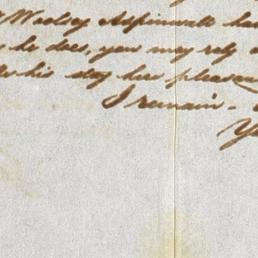 Woolsey Aspinwall ha
he does, you may rely o
his stay here pleasan
I remain -
Yo